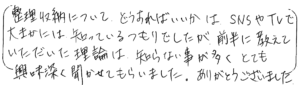 整理収納について、どうあればいいかは SNSやTVで
大まかには 知っているつもりでしたが 前半に教えて
いただいた理論は、知らない事が多く とても
興味深く聞かせてもらいました。ありがとうございました